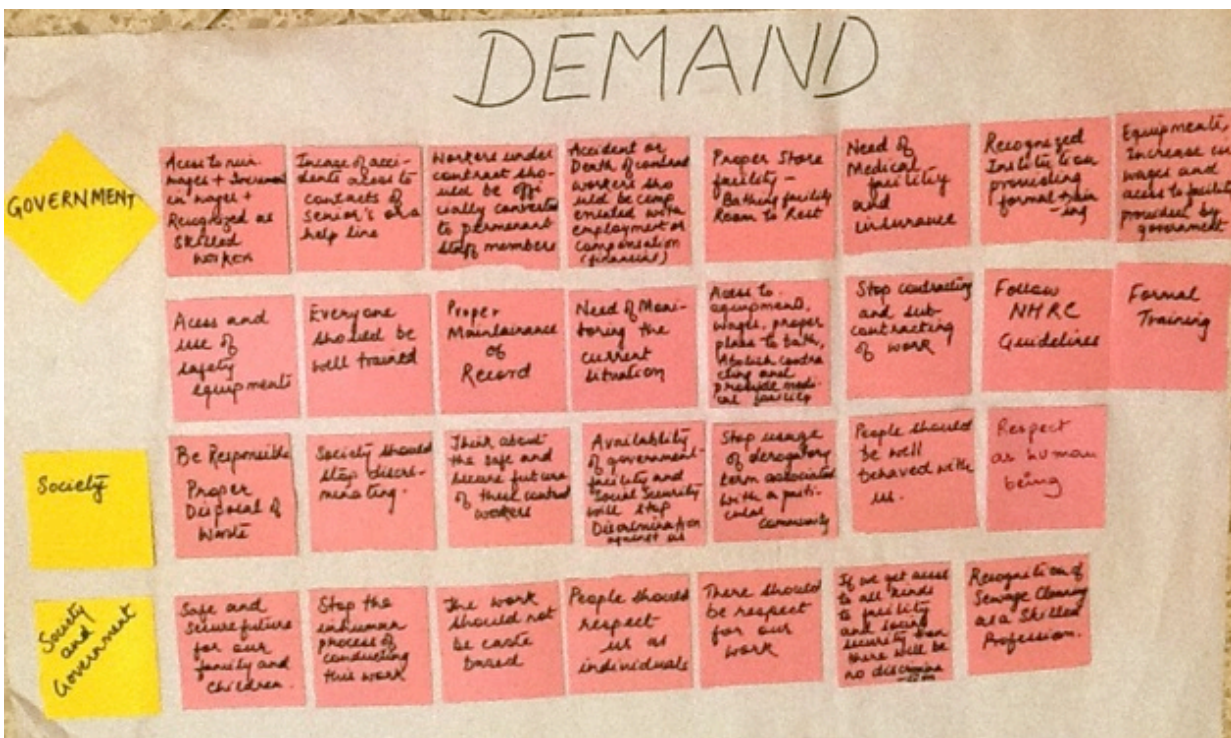 DEMAND
GOVERNMENT
Acess to min.
wages + Increment
in wages +
Recognized as
Skilled
worker
Incase of acci-
dents acess to
contacts of
senior's or a
help line
Workers under
contract sho-
uld be offi
cially converted
to permanent
staff members
Accident or
Death of contract
workers sho
uld be comp
ensated with
employment or
compensation
(financial)
Proper Store
facility -
Bathing facility
Room to Rest
Need of
Medical
facility
and
insurance
Recognized
Institution
providing
formal train
-ing
Equipments,
Increase in
wages and
acess to facility
provided by
government
Acess and
use of
safety
equipments
Everyone
should be
well trained
Proper
Maintainance
of
Record
Need of Moni-
toring the
current
situation
Acess to
equipments,
wages, proper
place to bath,
Abolish contra
cting and
provide medi-
cal facility
Stop contracting
and sub-
contracting
of work
Follow
NHRC
Guidelines
Formal
Training
Society
Be Responsible
Proper
Disposal of
Waste
Society should
stop discri-
minating.
Think about
the safe and
secure future
of these contract
workers
Availablity
of government-
facility and
Social Security
will stop
Discrimination
against us
Stop usage
of derogatory
term associated
with a parti-
cular
community
People should
be well
behaved with
us.
Respect
as human
being
Society
and
Government
Safe and
secure future
for our
family and
children.
Stop the
inhuman
process of
conducting
this work
The work
should not
be caste
based
People should
respect
us as
individuals
There should
be respect
for our
work
If we get acess
to all kinds
to facility
and social
security than
there will be
no discrimina
-tion
Recognition of
Sewage Cleaning
as a Skilled
Profession.